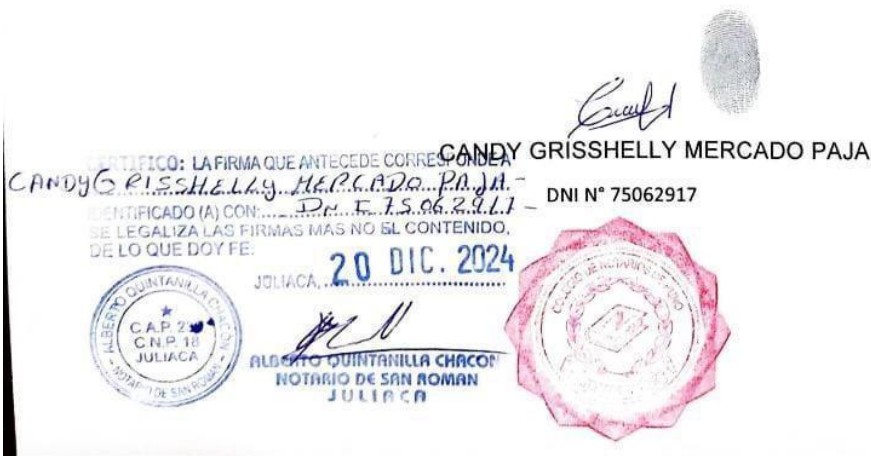 CANDY GRISSHELLY MERCADO PAJA
DNI N° 75062917
CERTIFICO: LA FIRMA QUE ANTECEDE CORRESPONDE A
CANDY GRISSHELLY MERCADO PAJA-
IDENTIFICADO (A) CON: DNI 75062917-
SE LEGALIZA LAS FIRMAS MAS NO EL CONTENIDO,
DE LO QUE DOY FE:
JULIACA, 20 DIC. 2024
ALBERTO QUINTANILLA CHACON
C.A.P.
C.N.P. 18
JULIACA
NOTARIO DE SAN ROMAN
ALBERTO QUINTANILLA CHACON
NOTARIO DE SAN ROMAN
JULIACA
COLEGIO DE NOTARIOS DE PUNO